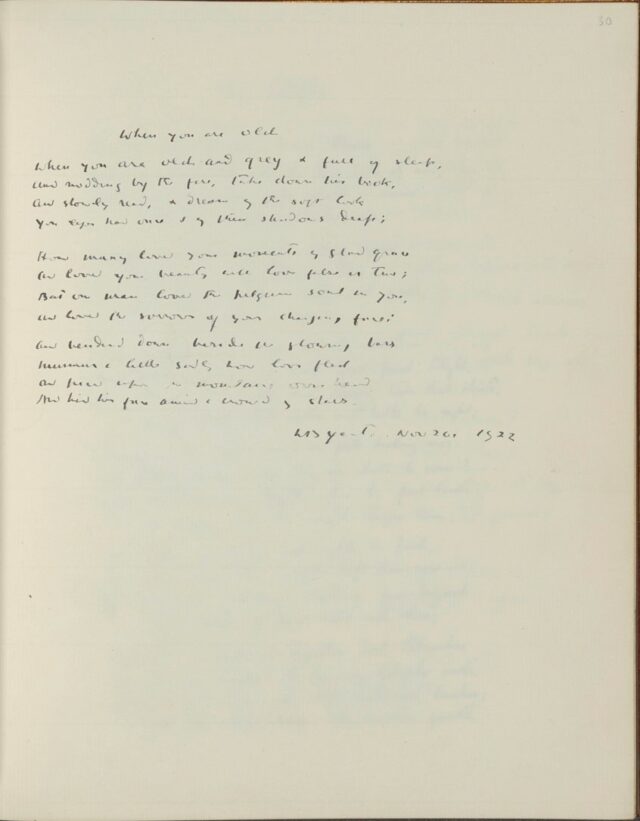 30
When you are old
When you are old and grey & full of sleep,
And nodding by the fire, take down this book,
And slowly read, & dream of the soft look
Your eyes had once & of their shadows deep;
How many loved your moments of glad grace
And loved your beauty with love false or true;
But one man loved the pilgrim soul in you,
And loved the sorrows of your changing face;
And bending down beside the glowing bars
Murmur a little sadly how love fled
And paced upon the mountains over head
And hid his face amid a crowd of stars.
WB Yeats. Nov 1922